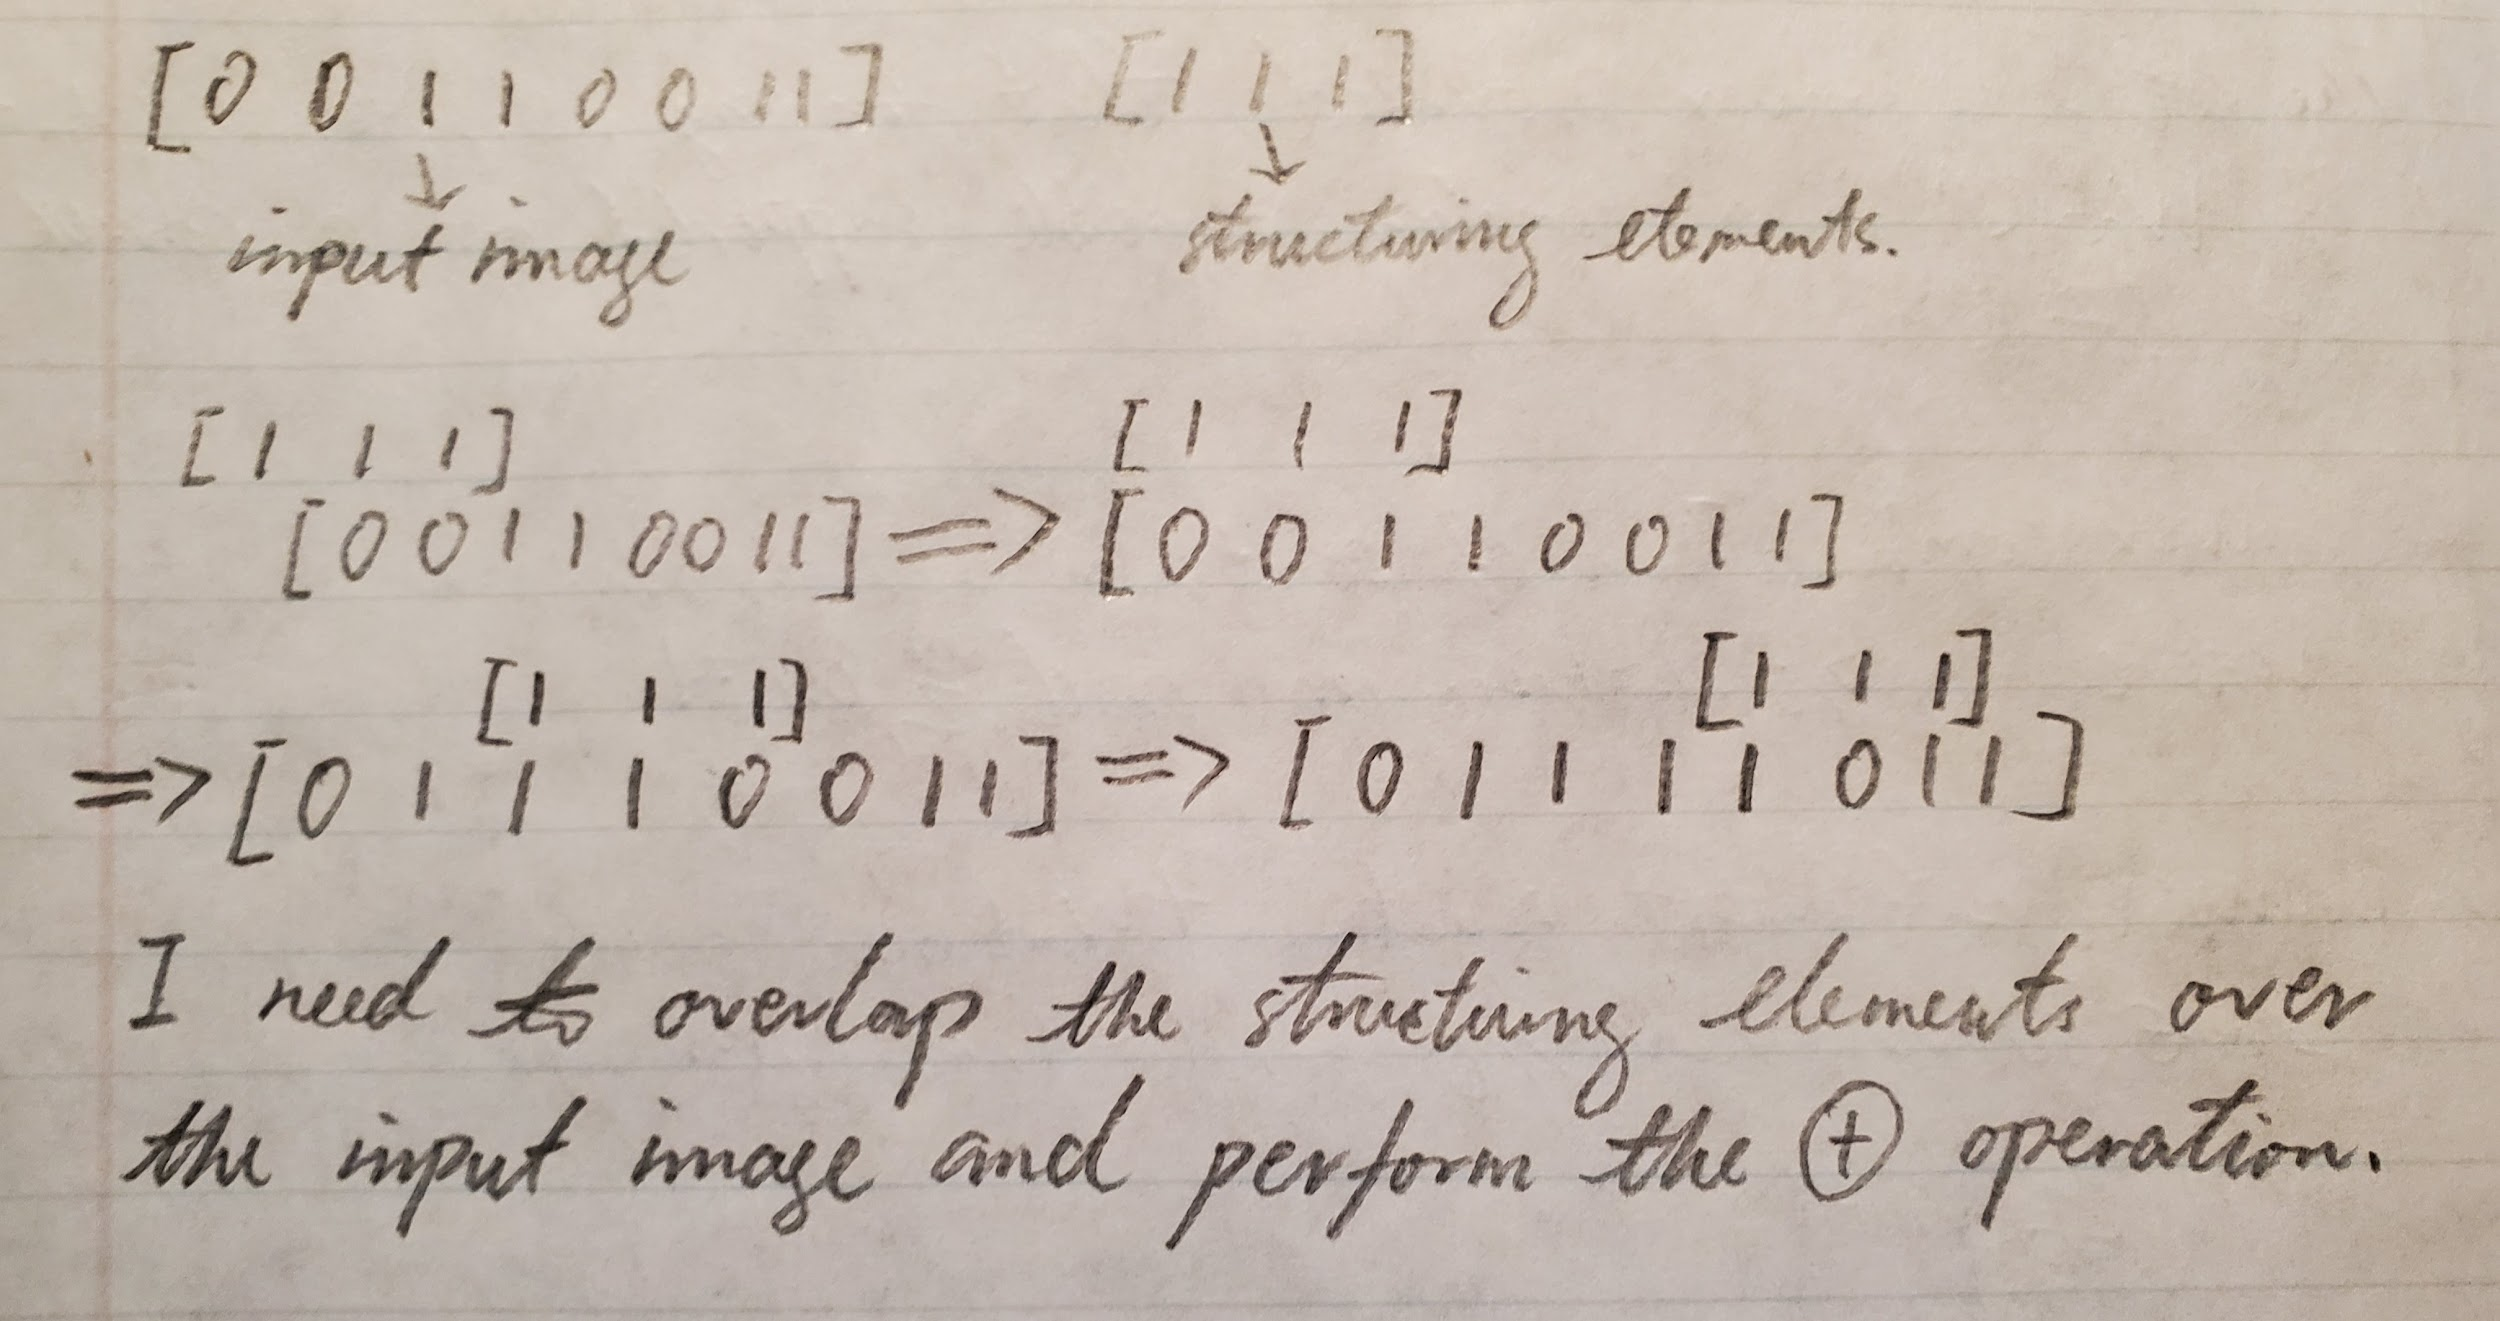 [0 0 1 1 0 0 1 1] [1 1 1]
↓ ↓
input image structuring elements.
[1 1 1] [1 1 1]
[0 0 1 1 0 0 1 1] => [0 0 1 1 0 0 1 1]
[1 1 1] [1 1 1]
=> [0 1 1 1 0 0 1 1] => [0 1 1 1 1 0 1 1]
I need to overlap the structuring elements over
the input image and perform the ⊕ operation.